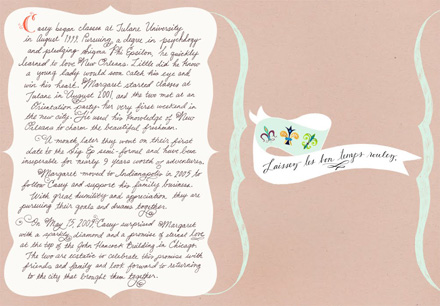 Casey began classes at Tulane University
in August 1999. Pursuing a degree in psychology
and pledging Sigma Phi Epsilon, he quickly
learned to love New Orleans. Little did he know
a young lady would soon catch his eye and
win his heart. Margaret started classes at
Tulane in August 2001, and the two met at an
Orientation party her very first weekend in
the new city. He used his knowledge of New
Orleans to charm the beautiful freshman.
A month later they went on their first
date to the Sig Ep semi-formal and have been
inseperable for nearly 9 years worth of adventures.
Margaret moved to Indianapolis in 2005 to
follow Casey and support his family business.
With great humility and appreciation they are
pursuing their goals and dreams together.
On May 15, 2009, Casey surprised Margaret
with a sparkly diamond and a promise of eternal love
at the top of the John Hancock Building in Chicago.
The two are ecstatic to celebrate this promise with
friends and family and look forward to returning
to the city that brought them together.
Laissez les bon temps rouler,